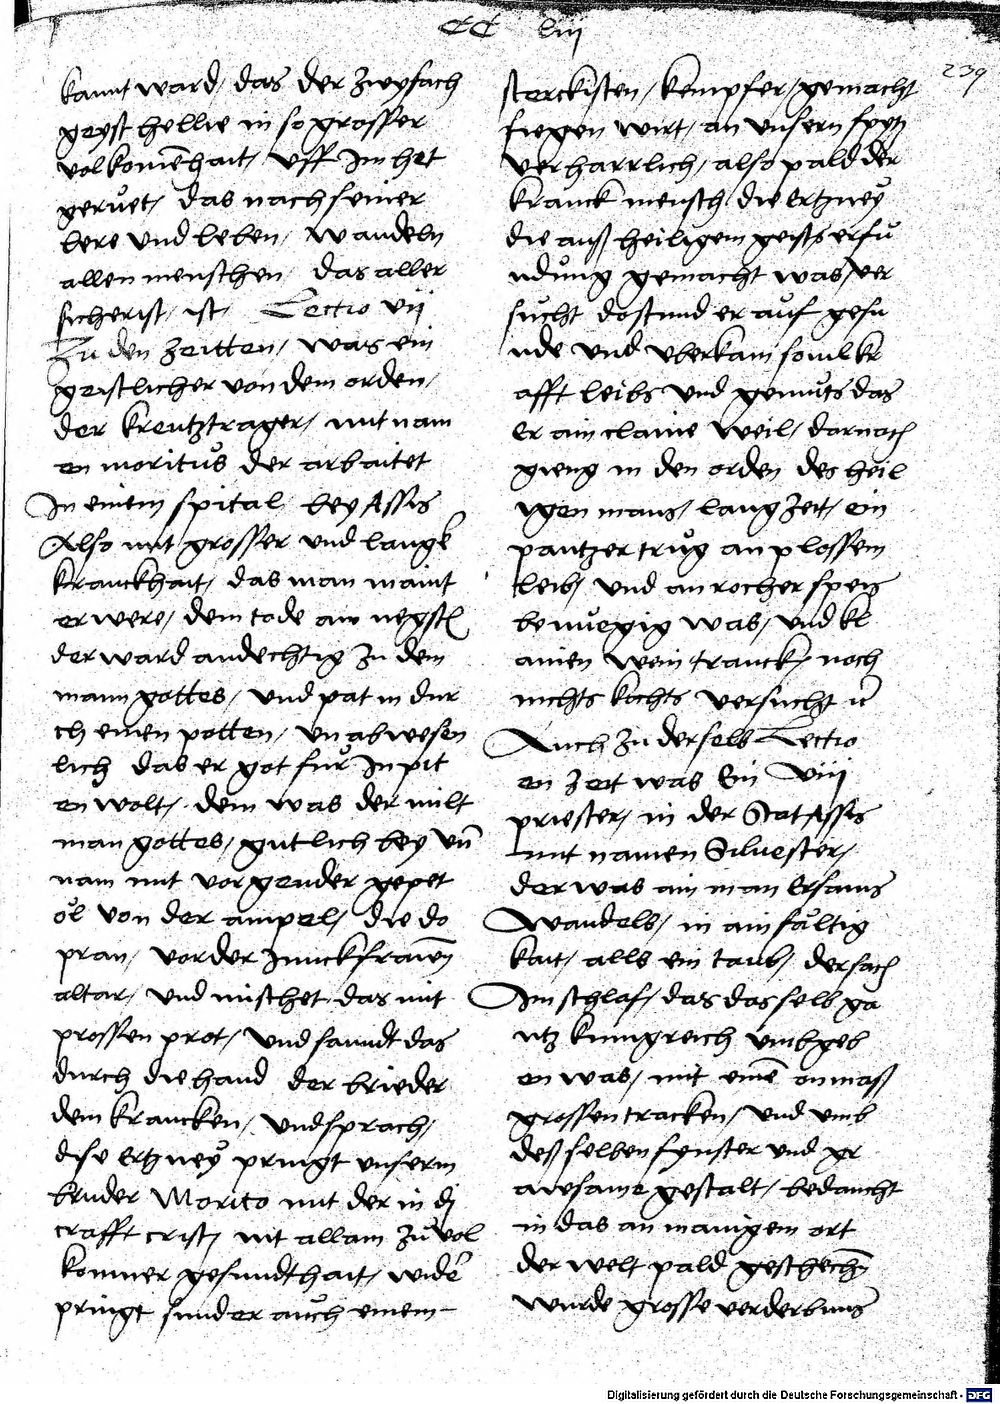 CC liij
239
kannt ward, das der zwyfach
geyst hellie in so grosser
volkomēhait, uff Im het
gerůet, das nach seiner
lere und leben, wandeln
allen menschen, das aller
sicherist, ist, Lectio vij
Zu den zeitten, was ein
geistlicher von dem orden,
der kreutztrager, mit nam
en moritůs der arbaitet
In einem spital bey Assis
Also mit grosser und langer
kranckhait, das man maint
er were, dem tode am negsten
der ward andechtig zu dem
mann gottes, und pat in dur
ch einen potten, un abwesen
lich das er got fur In pit
en wolt, dem was der milt
man gottes, gutlich bey uñ
nam mit vorgender gepet
ol von der ampel, die do
pran, vor der Junckfrawen
altar, und mischet das mit
prossen prot, und sanndt das
durch die hand der brieder
dem krancken, und sprach,
dise Ertzney pringt unserm
bruder Morito mit der in dj
crafft crist, nit allain zů vol
komner gesundthait, wider
pringt sunder auch einem
sterckisten, kempfer, gemacht
fiegen wirt, an unsern spytz
verharrlich, also pald der
kranck mensch die Ertzney
die auß heiligem geists erfu
ndung gemacht was, ver
sucht do stund er auf gesu
nde und uberkam sovil kr
afft leibs und gemuts das
er ain claine weil, darnach
gieng in den orden des heil
igen mans, lang zeit, ein
pantzer trůg an plossem
leib, und an rocher speis
benuegig was, und kl
ainen wein tranck, noch
nichts kochts versucht er
Auch zu derselb Lectio
en zeit was Ein viij
priester, in der Stat Assis
mit namen Silvester,
der was ain man Ersams
Wandels, in ainfaltig
kait, alls ein taub, der sach
Im schlaf, das das selb ga
ntz kunigreich umbgeb
en was, mit einē onmaß
grossen tracken, und umb
deß selben fynster und gr
awsame gestalt, bedaucht
in das an manigem ort
der welt pald geschechn
wurde grosse verderbnus
Digitalisierung gefördert durch die Deutsche Forschungsgemeinschaft - DFG